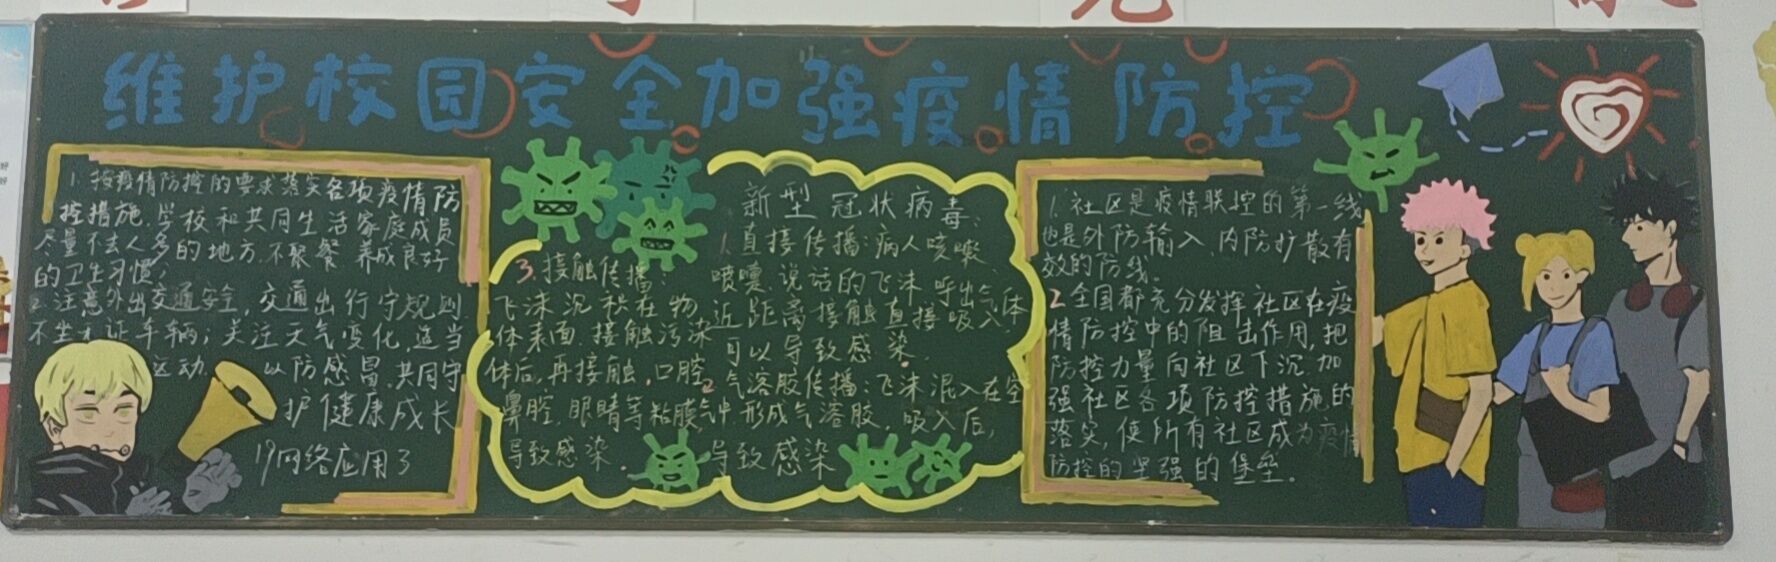 维护校园安全加强疫情防控
1.按疫情防控的要求落实各项疫情防
控措施.学校和共同生活家庭成员
尽量不去人多的地方.不聚餐.养成良好
的卫生习惯;
2.注意外出交通安全,交通出行守规则
不坐无证车辆,关注天气变化,适当
运动.以防感冒.共同守
护健康成长
19网络应用3
新型冠状病毒:
1.直接传播:病人咳嗽、
喷嚏、说话的飞沫 呼出气体
近距离接触直接吸入,
可以导致感染.
2.气溶胶传播:飞沫混入在空
气中形成气溶胶,吸入后,
导致感染
3.接触传播:
飞沫沉积在物
体表面.接触污染
体后,再接触.口腔
鼻腔.眼睛等粘膜
导致感染.
1.社区是疫情联控的第一线
也是外防输入、内防扩散有
效的防线。
2全国都充分发挥社区在疫
情防控中的阻击作用,把
防控力量向社区下沉 加
强社区各项防控措施的
落实,使所有社区成为疫情
防控的坚强的堡垒。